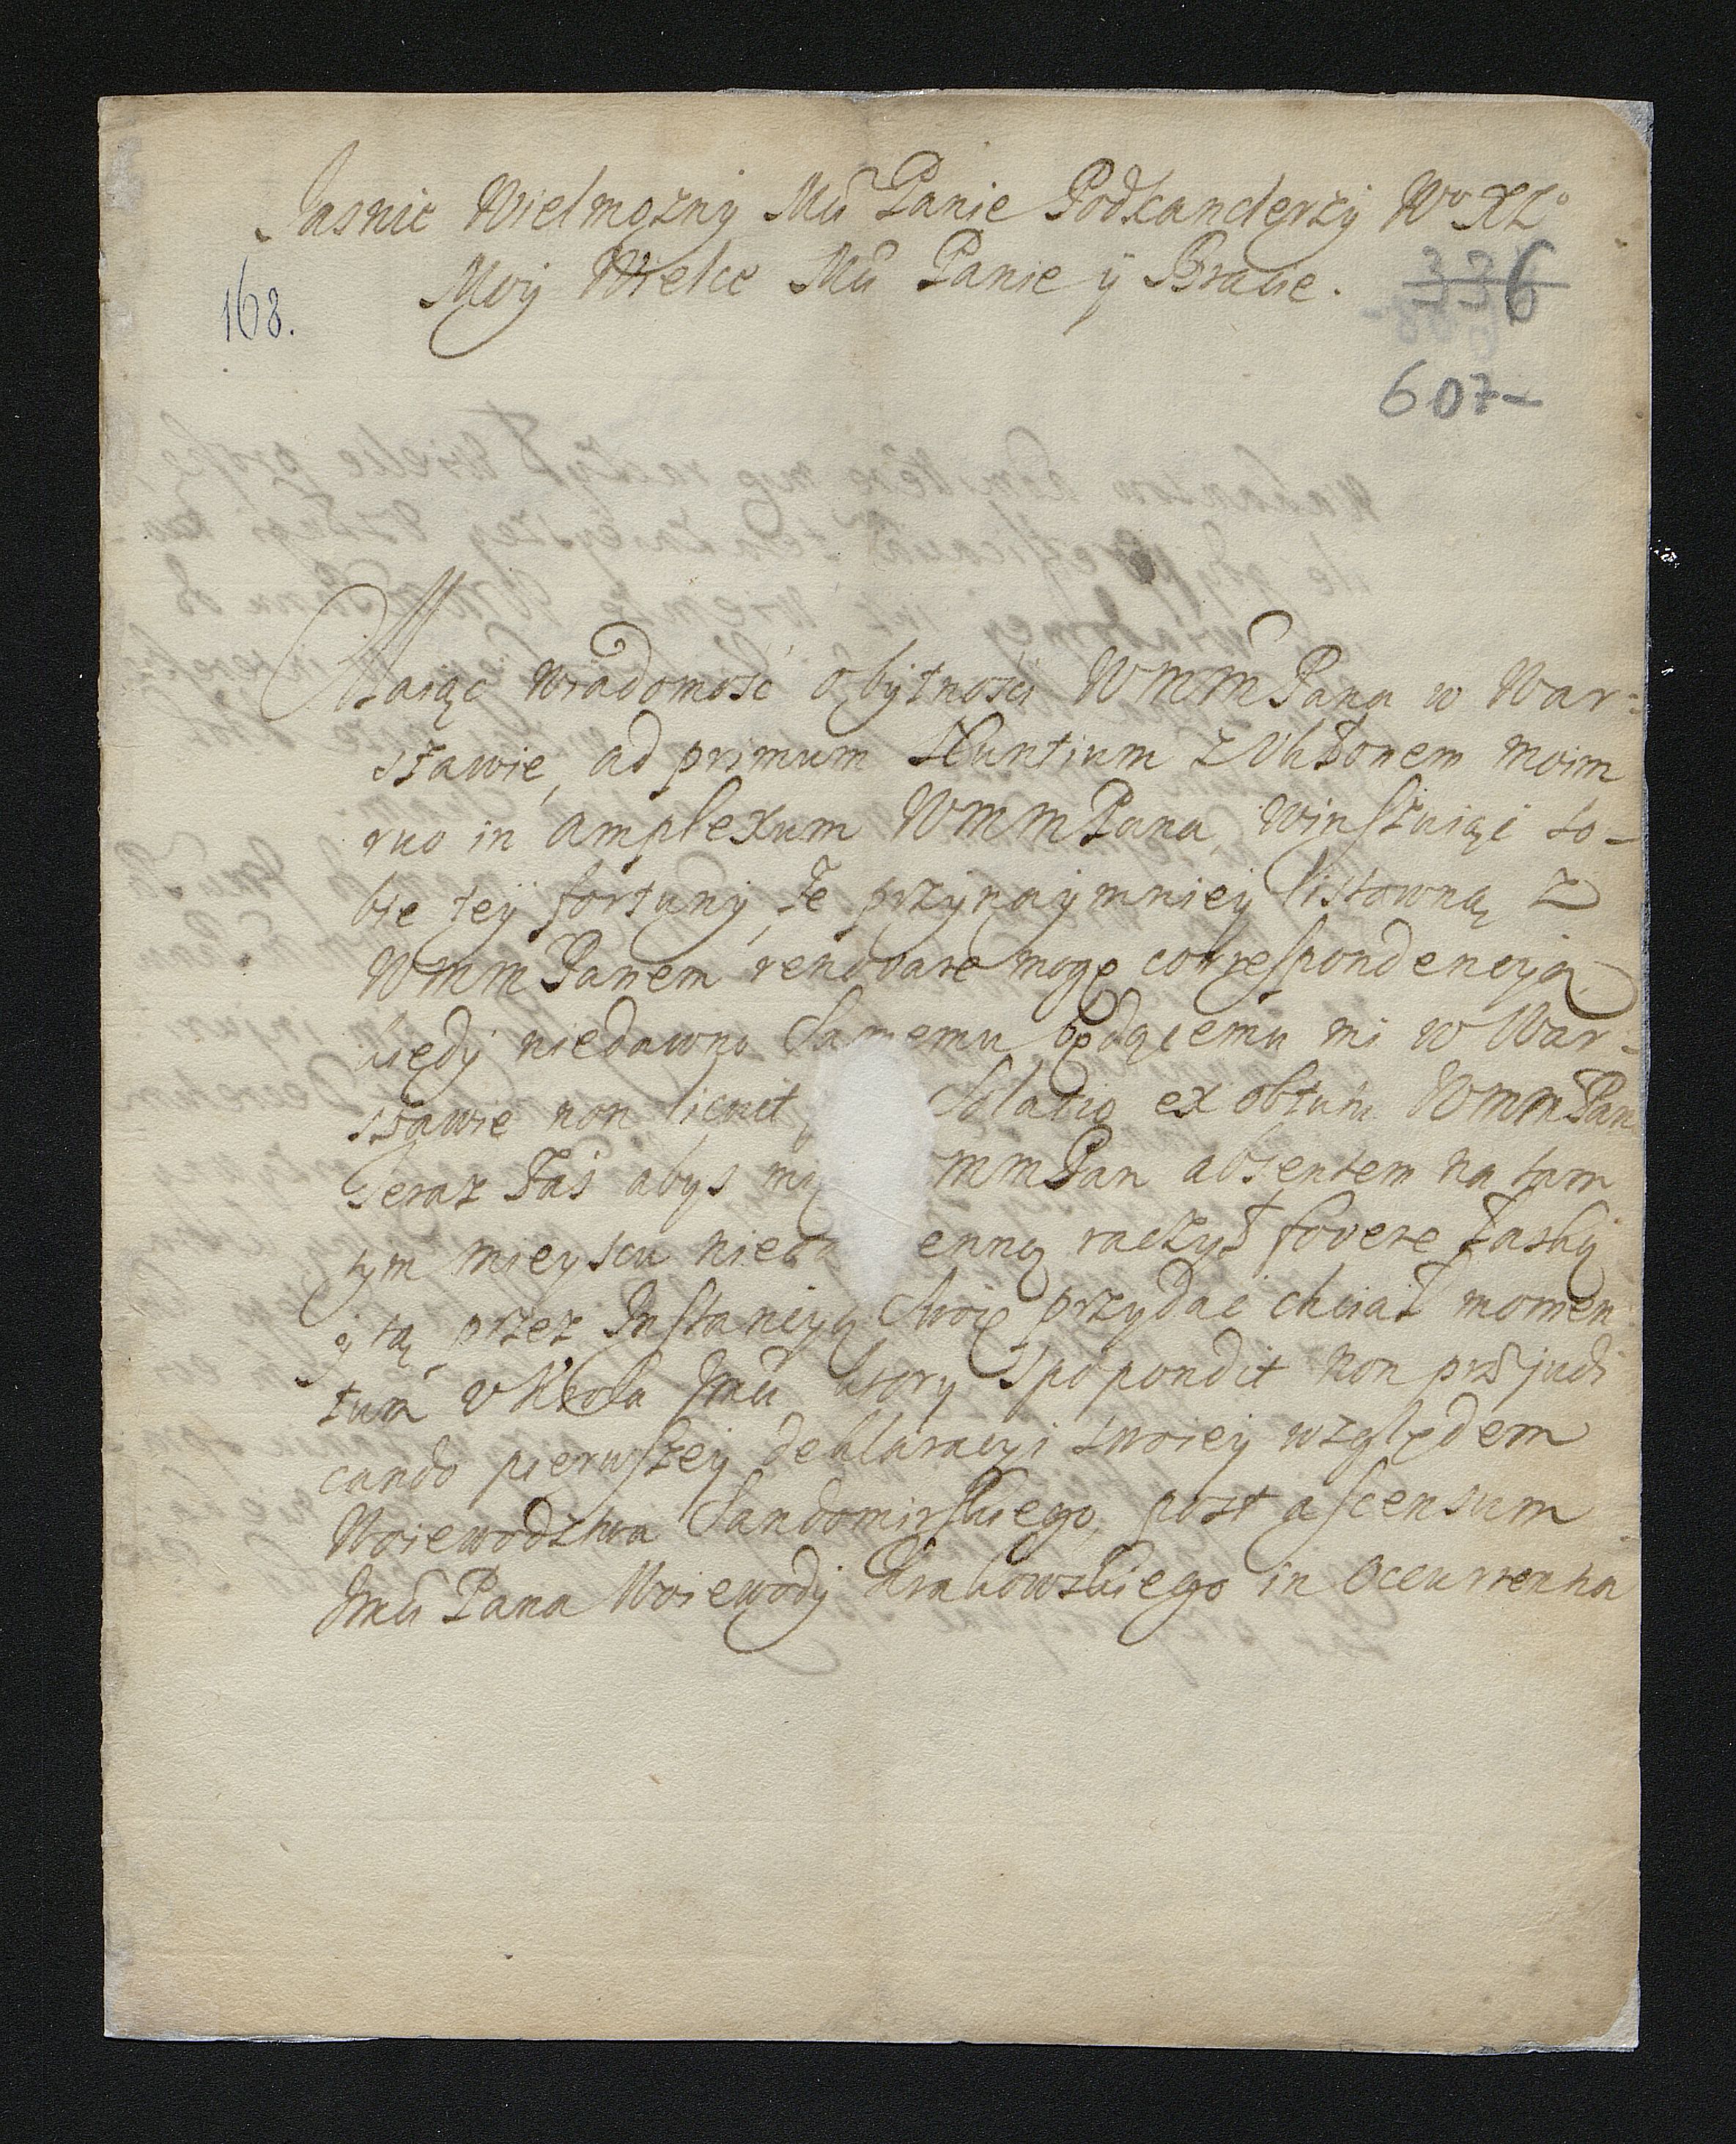 Jasnie Wielmozny Mć Panie Podkanclerzy Wº XLº
Moy Wielce Mć Panie y Bracie.
168.
336
607-
Maiąc wiadomość o bytności WMM Pana w War-
szawie, ad primum Nuntium z Ukłonem moim
ruo in amplexum WMMPana, winszuiąc so-
bie tey fortuny, że przynaymniey listowną z
WMMPanem renovare mogę correspondencyą,
kiedy niedawno Samemu będącemu mi w War-
szawie non licuit Solatio ex obtutu WMMPan
Teraz zaś abys mię MMPan absentem na tam
tym mieyscu nieod enną raczył fovere łaską
y tą przez Instancyą Swoię przydać chciał momen
tum v Krola Jmći ktory Spopondit non præjudi
cando pierwszey deklaracyi swoiey względem
Woiewodztwa Sandomirskiego, post ascensum
Jmći Pana Woiewody Krakowskiego in Occurrentia